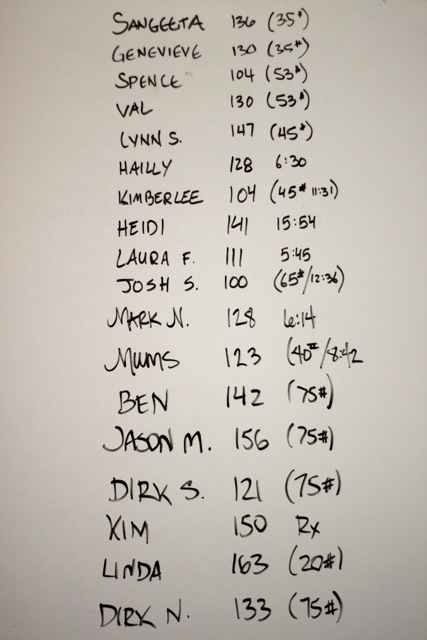 SANGEETA 136 (35#)
GENEVIEVE 130 (35#)
SPENCE 104 (53#)
VAL 130 (53#)
LYNN S. 147 (45#)
HAILLY 128 6:30
KIMBERLEE 104 (45# 11:31)
HEIDI 141 15:54
LAURA F. 111 5:45
JOSH S. 100 (65#/12:36)
MARK N. 128 6:14
MUMS 123 (40#/8:42
BEN 142 (75#)
JASON M. 156 (75#)
DIRK S. 121 (75#)
KIM 150 Rx
LINDA 163 (20#)
DIRK N. 133 (75#)